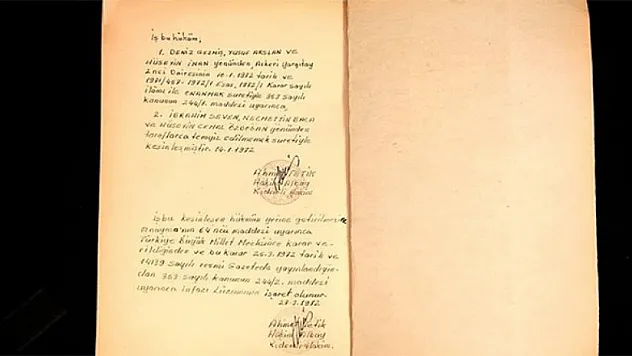 İş bu hüküm;
1. DENİZ GEZMİŞ, YUSUF ARSLAN VE
HÜSEYİN İNAN yönünden, Askeri Yargıtay
2nci Dairesinin 10.1.1972 tarih ve
1971/457- 1972/1 Esas, 1972/1 Karar sayılı
ilâmı ile ONANMAK suretiyle 353 sayılı
kanunun 244/1. maddesi uyarınca,
2. İBRAHİM SEVEN, NECMETTİN BACA
VE HÜSEYİN CEMAL ÖZDOĞAN yönünden
taraflarca temyiz edilmemek suretiyle
kesinleşmiştir. 1972
Ahmet Tetik
Hakim Albay
Kıdemli Hakim
İşbu kesinleşen hükmün yerine getirilmesine
Anayasa'nın 64 ncü maddesi uyarınca
Türkiye Büyük Millet Meclisince karar ve-
rildiğinden ve bu karar 25.3.1972 tarih ve
14139 sayılı resmi Gazetede yayınlandığın-
dan 353 sayılı kanunun 244/2. maddesi
uyarınca infazı lüzumuna işaret olunur.
1972
Ahmet Tetik
Hakim Albay
Kıdemli Hakim.